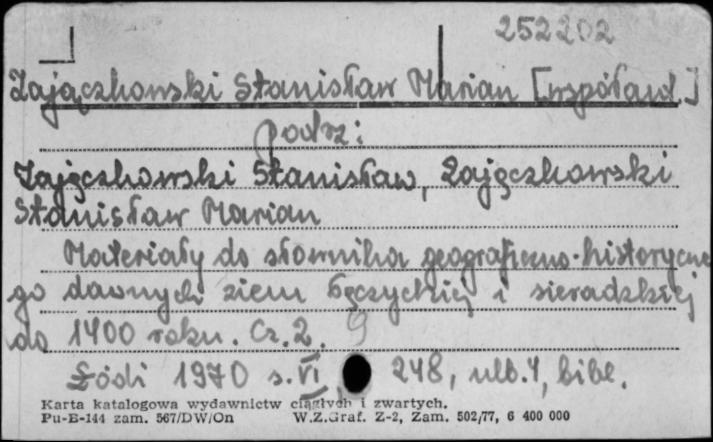 252202
Zajączkowski Stanisław Marian [współaut.]
podrz:
Zajączkowski Stanisław, Zajączkowski
Stanisław Marian
Materiały do słownika geograficzno-historyczne
go dawnych ziem łęczyckiej i sieradzkiej
do 1400 roku. Cz. 2.
Łódź 1970 s. VI, 248, nlb. 4, bibl.
Karta katalogowa wydawnictw ciągłych i zwartych.
Pu-B-144 zam. 567/DW/On W.Z.Graf. Z-2, Zam. 502/77, 6 400 000